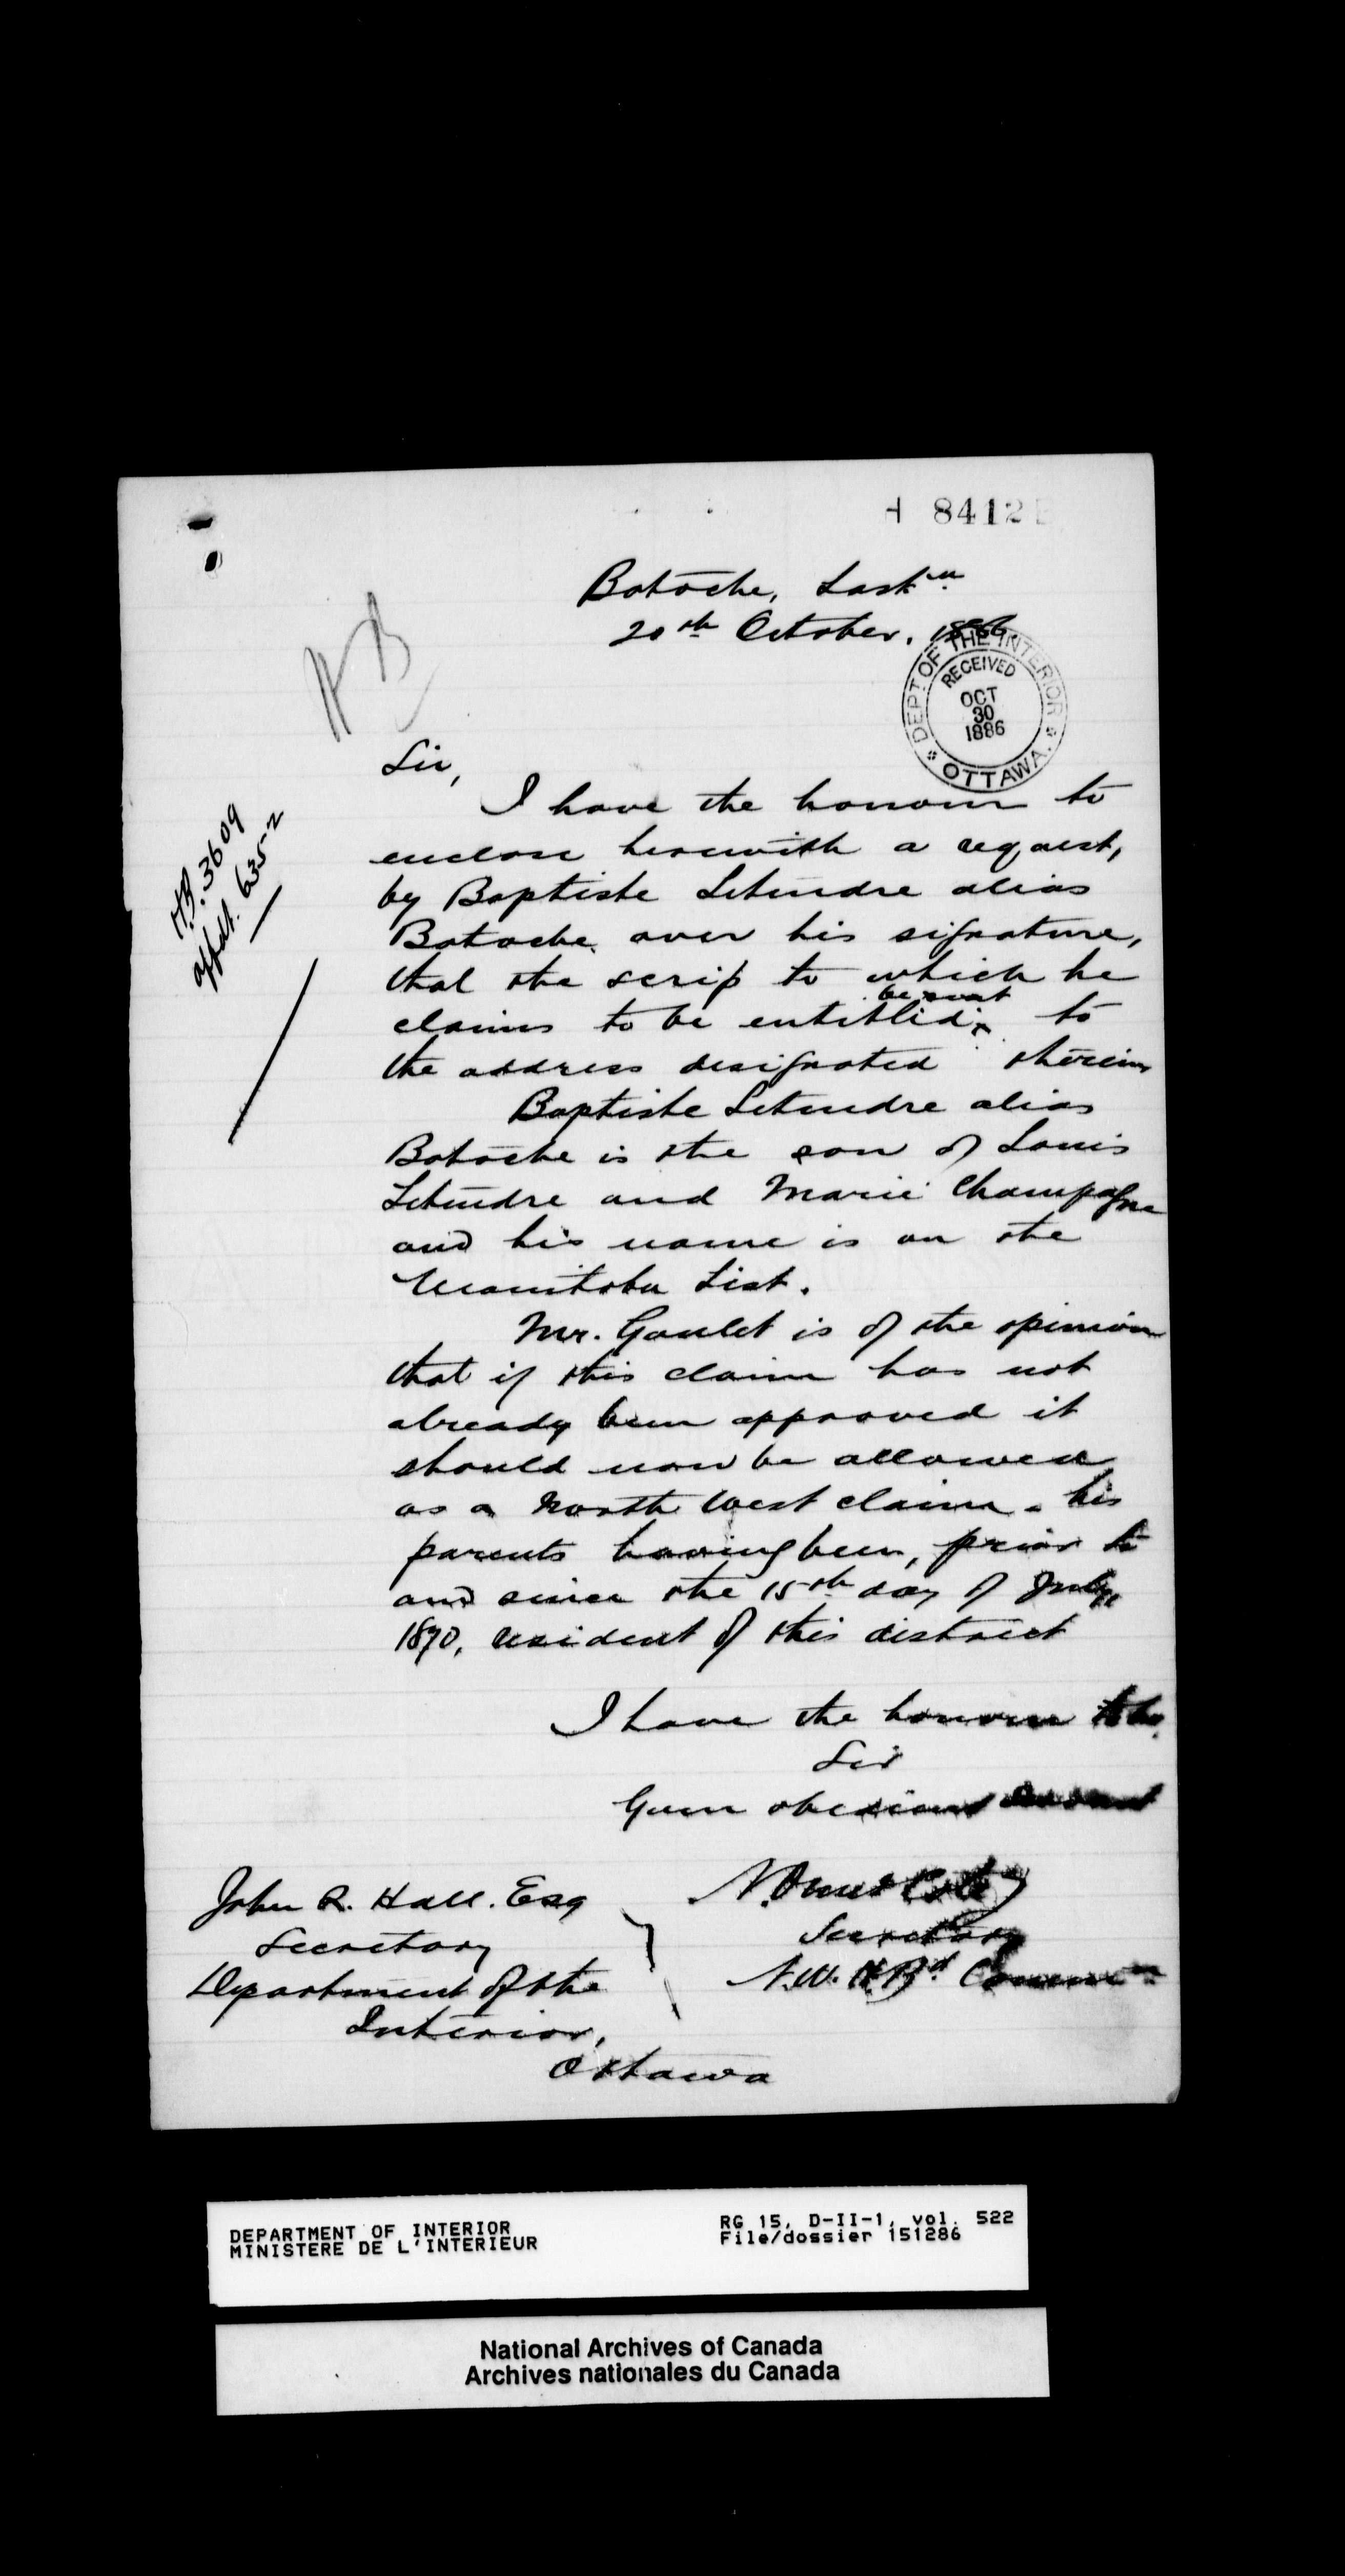 H 8412
Batoche, Sask.n
20th October, 1886
DEPT. OF THE INTERIOR
RECEIVED
OCT
30
1886
OTTAWA.
HB
HB. 3609
affdt. 6352
Sir,
I have the honour to
enclose herewith a request,
by Baptiste Letendre alias
Batoche, over his signature,
that the scrip to which he
be sent
claims to be entitled, to
the address designated therein
Baptiste Letendre alias
Batoche is the son of Louis
Letendre and Marie Champagne
and his name is on the
Manitoba List.
Mr. Goulet is of the opinion
that if this claim has not
already been approved it
should now be allowed
as a North West claim - his
parents having been, prior to
and since the 15th day of July,
1870, resident of this district
I have the honour to be,
Sir
Your obedient servant
N. Omer Coté
Secretary
N.W. H.Bd Commn
John R. Hall. Esq
Secretary
Department of the
Interior,
Ottawa
DEPARTMENT OF INTERIOR
MINISTERE DE L'INTERIEUR
RG 15, D-II-1, vol. 522
File/dossier 151286
National Archives of Canada
Archives nationales du Canada